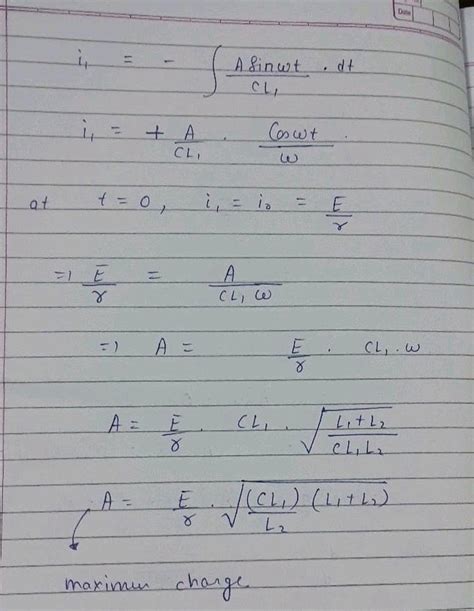 Date
i₁ = - ∫ A sinωt / CL₁ . dt
i₁ = + A / CL₁ . Cosωt / ω .
at t = 0, i₁ = i₀ = E / r
=) E / r = A / CL₁ ω
=) A = E / r . CL₁ . ω
A = E / r . CL₁ . √((L₁+L₂) / (CL₁L₂))
A = E / r . √((CL₁) (L₁+L₂) / L₂)
maximum charge